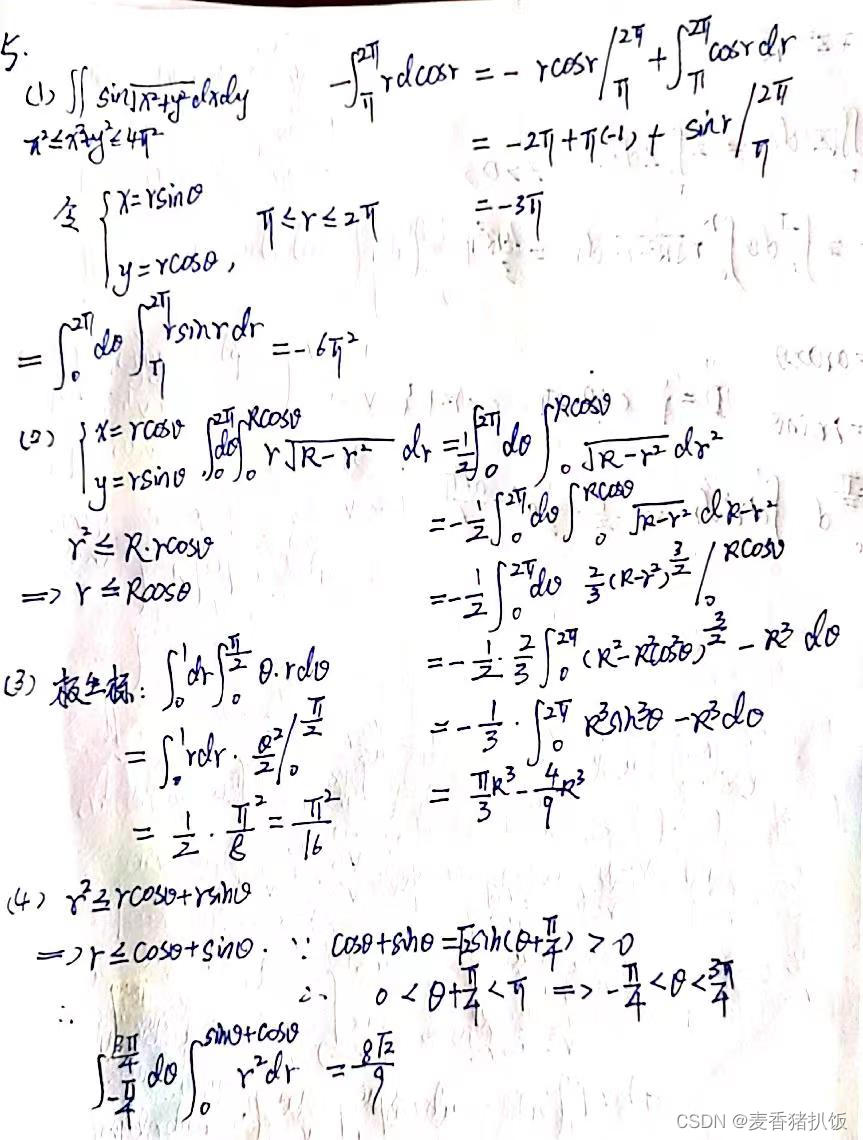 5.
(1) ∬ sin√(x²+y²) dxdy
π²≤x²+y²≤4π²
令 { x=rsinθ
y=rcosθ, π≤r≤2π
= ∫₀^{2π} dθ ∫_π^{2π} rsinr dr = -6π²
-∫_π^{2π} r dcosr = - rcosr |_π^{2π} + ∫_π^{2π} cosr dr
= -2π+π(-1) + sinr |_π^{2π}
= -3π
(2) { x=rcosθ
y=rsinθ . ∫₀^{2π} dθ ∫₀^{Rcosθ} r√(R-r²) dr = ½∫₀^{2π} dθ ∫₀^{Rcosθ} √(R-r²) dr²
r² ≤ R·rcosθ
=> r ≤ Rcosθ
= -½ ∫₀^{2π} dθ ∫₀^{Rcosθ} √(R-r²) d R-r²
= -½ ∫₀^{2π} dθ ⅔ (R-r²)^{3/2} |₀^{Rcosθ}
= -½·⅔ ∫₀^{2π} (R²-R²cos²θ)^{3/2} - R³ dθ
= -⅓ · ∫₀^{2π} R³sin³θ - R³ dθ
= π/3 R³ - 4/9 R³
(3) 极坐标: ∫₀¹ dr ∫₀^{π/2} θ·r dθ
= ∫₀¹ r dr · θ²/2 |₀^{π/2}
= ½ · π²/8 = π²/16
(4) r² ≤ rcosθ+rsinθ
=> r ≤ cosθ+sinθ. ∵ cosθ+sinθ = √2 sin(θ+π/4) > 0
∴ 0 < θ+π/4 < π => -π/4 < θ < 3π/4
∴
∫_{-π/4}^{3π/4} dθ ∫₀^{sinθ+cosθ} r² dr = 8√2/9
CSDN @麦香猪扒饭